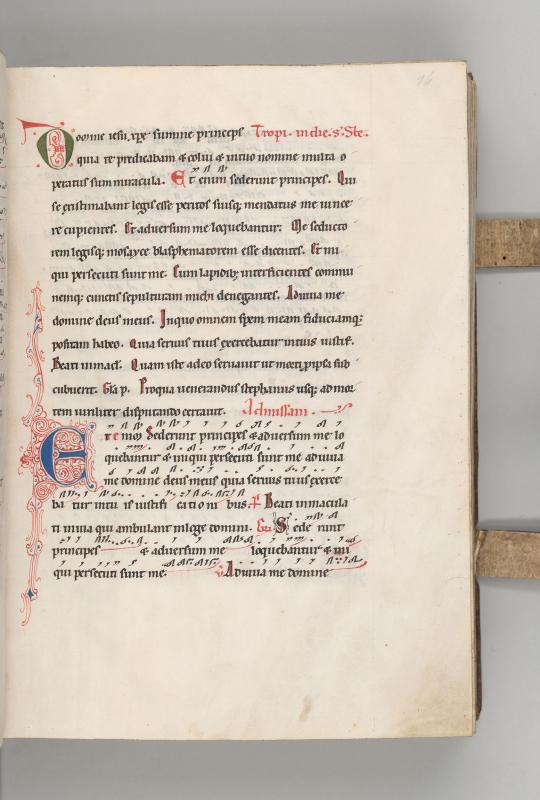 16
Domine iesu xpe summe princeps Tropi. in die. s. Ste.
quia te predicabam & colui & initio nomine multa o
peratus sum miracula. Et enim sederunt principes. Qui
se existimabant legis esse peritos suisq; mendatiis me vince
re cupientes. Et adversum me loquebantur. Me seducto
rem legisq; mosayce blasphematorem esse dicentes. Et ini
qui persecuti sunt me. Cum lapidib; interficientes commu
nemq; cunctis sepulturam michi denegantes. Adiuva me
domine deus meus. In quo omnem spem meam fiduciamq;
positam habeo. Quia servus tuus exercebatur in tuis iustif.
Beati inmacl. Quam iste adeo servavit ut morti p ipsa sub
cubuerit. Gla p. Pro qua venerandus stephanus usq; ad mor
tem viriliter disputando certavit. Ad missam.
Et enim Sederunt principes & adversum me lo
quebantur & iniqui persecuti sunt me adiuva
me domine deus meus quia servus tuus exerce
ba tur in tu is iustifi catio ni bus. P Beati inmacula
ti in via qui ambulant in lege domini. Gr. S ede runt
principes & adversum me loquebantur & ini
qui persecuti sunt me. V Adiuva me domine